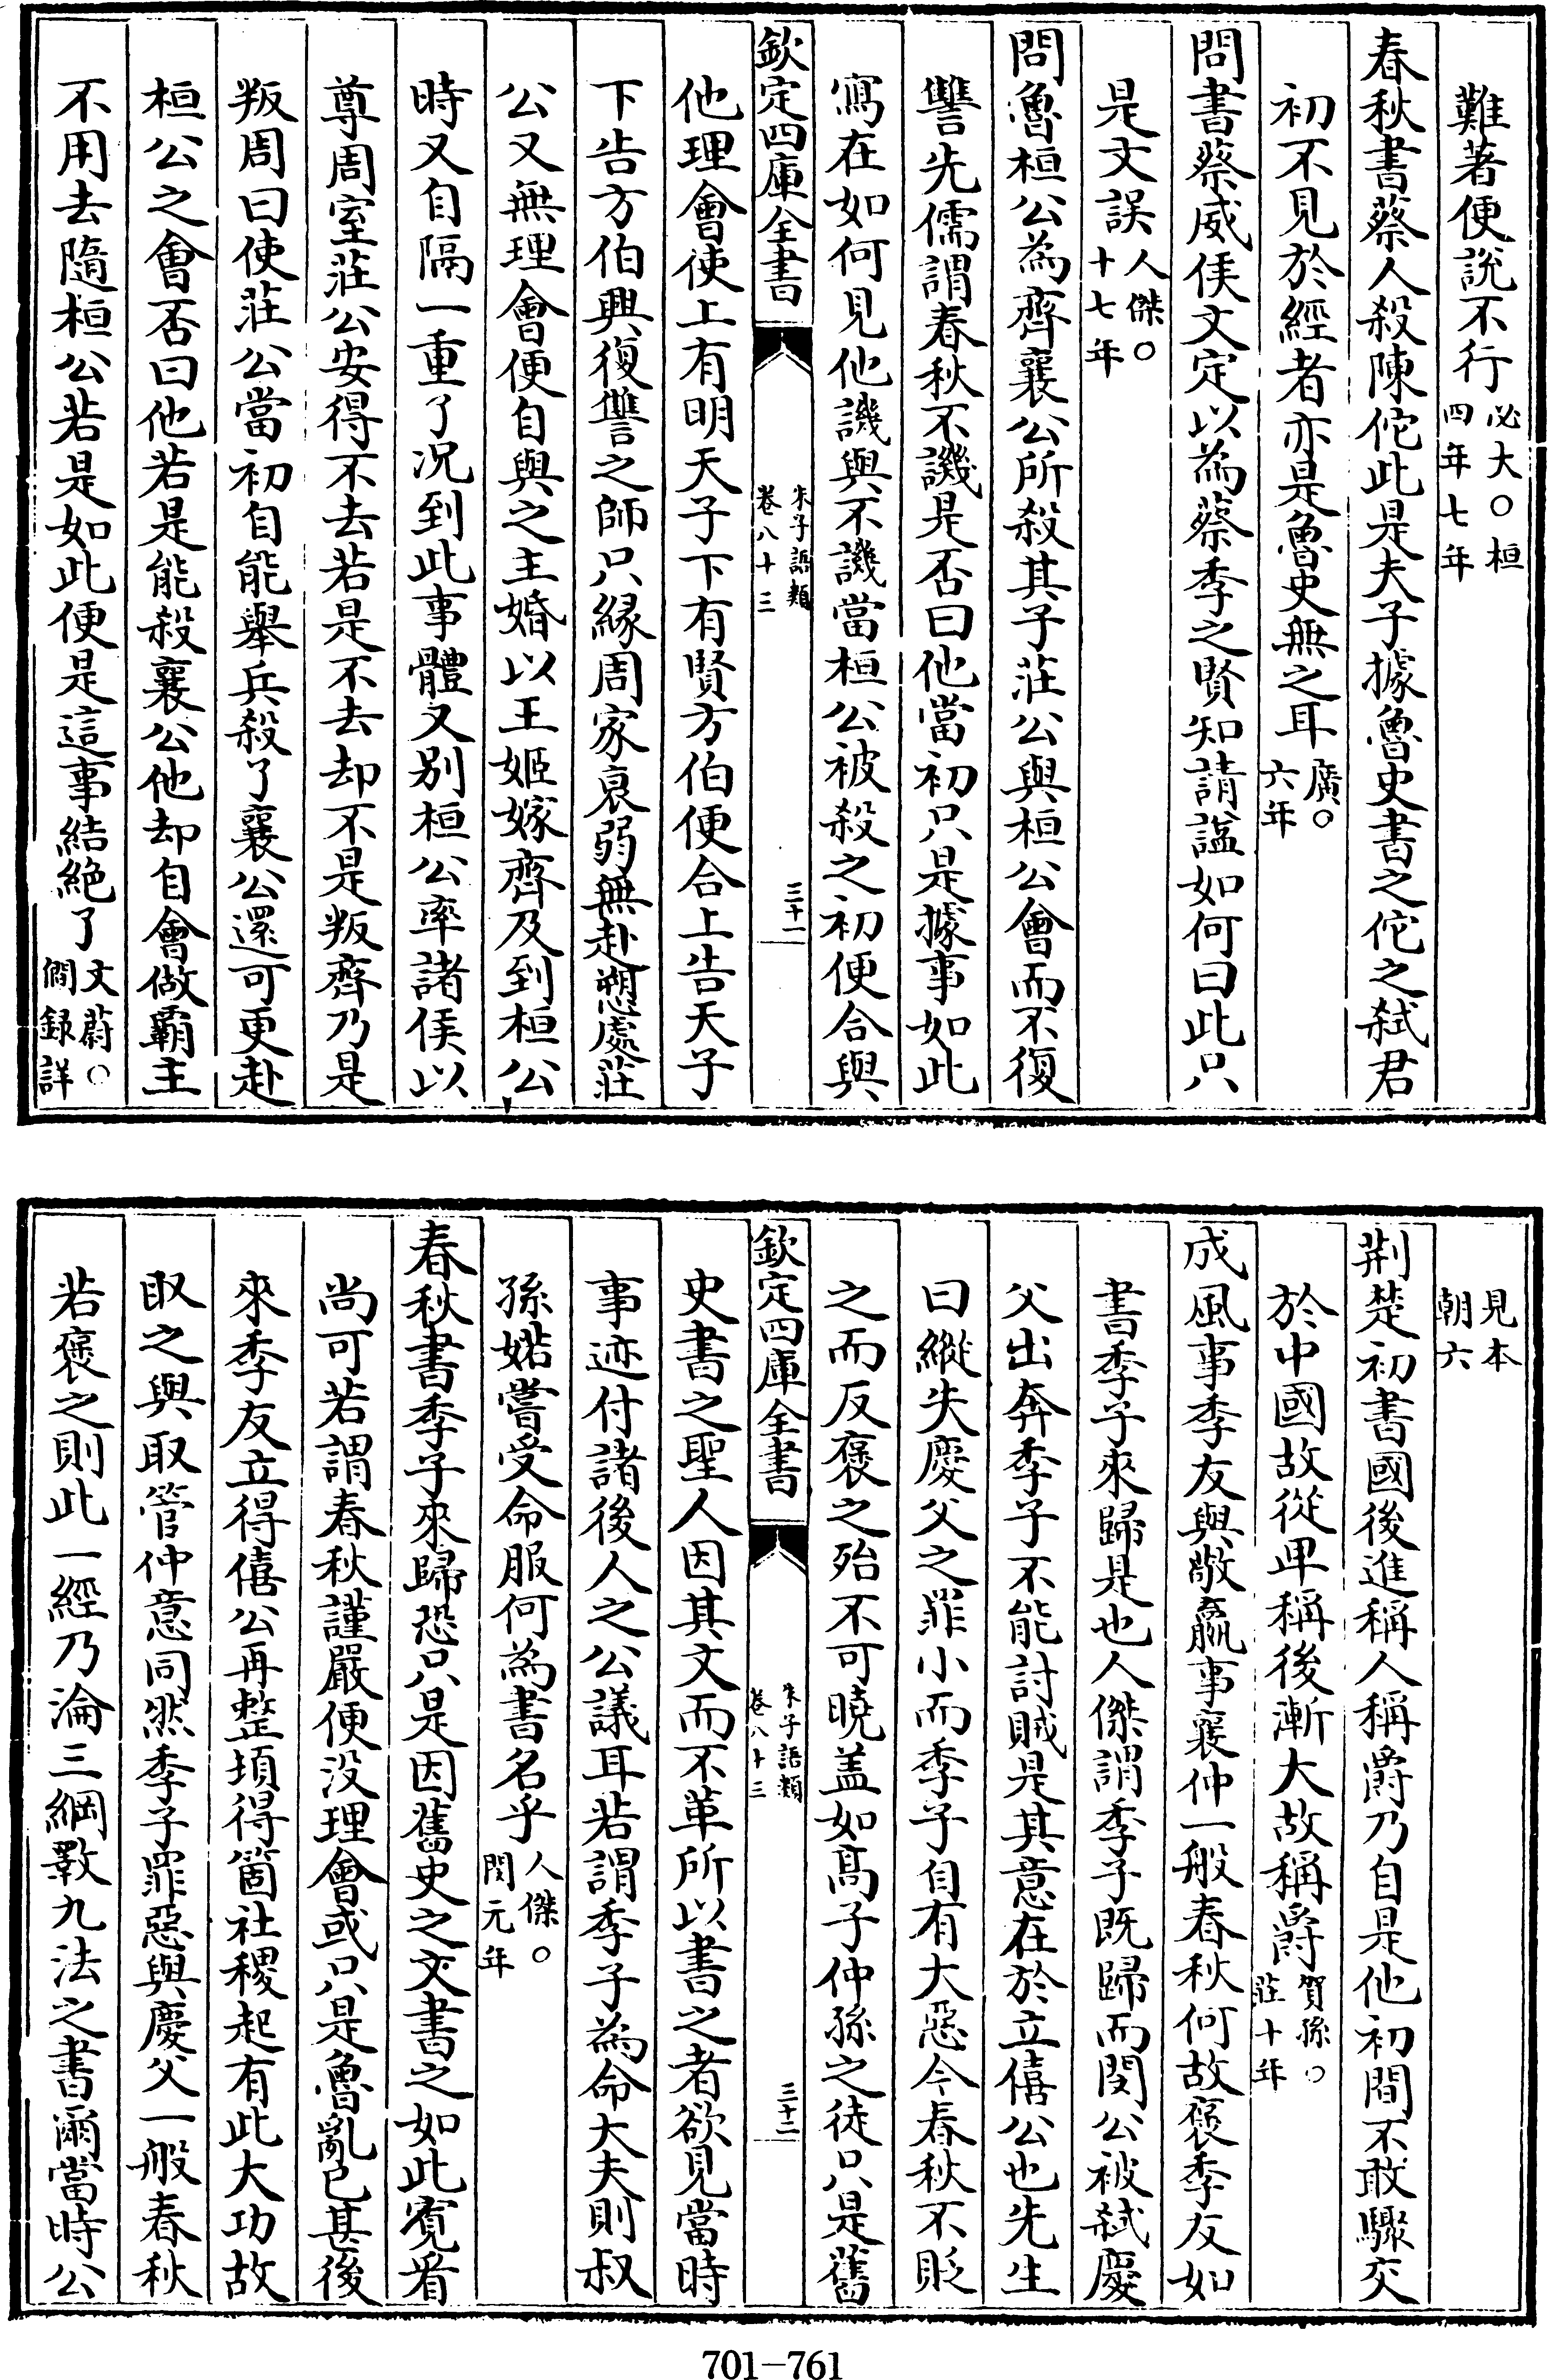 難著便説不行必大○桓四年七年
春秋書蔡人殺陳佗此是夫子據魯史書之佗之弑君
初不見於經者亦是魯史無之耳廣○六年
問書蔡威侯文定以為蔡季之賢知請諡如何曰此只
是文誤人傑○十七年
問魯桓公為齊襄公所殺其子莊公與桓公會而不復
讐先儒謂春秋不譏是否曰他當初只是據事如此
寫在如何見他譏與不譏當桓公被殺之初便合與
欽定四庫全書
朱子語類
卷八十三
三十一
他理會使上有明天子下有賢方伯便合上告天子
下告方伯興復讐之師只緣周家衰弱無赴愬處莊
公又無理會便自與之主婚以王姬嫁齊及到桓公
時又自隔一重了况到此事體又别桓公率諸侯以
尊周室莊公安得不去若是不去却不是叛齊乃是
叛周曰使莊公當初自能舉兵殺了襄公還可更赴
桓公之會否曰他若是能殺襄公他却自會做霸主
不用去隨桓公若是如此便是這事結絶了文蔚○僩録詳
見本朝六
荆楚初書國後進稱人稱爵乃自是他初間不敢驟交
於中國故從卑稱後漸大故稱爵賀孫○莊十年
成風事季友與敬嬴事襄仲一般春秋何故褒季友如
書季子來歸是也人傑謂季子既歸而閔公被弑慶
父出奔季子不能討賊是其意在於立僖公也先生
曰縱失慶父之罪小而季子自有大惡今春秋不貶
之而反褒之殆不可曉盖如髙子仲孫之徒只是舊
欽定四庫全書
朱子語類
卷八十三
三十二
史書之聖人因其文而不革所以書之者欲見當時
事迹付諸後人之公議耳若謂季子為命大夫則叔
孫婼嘗受命服何為書名乎人傑○閔元年
春秋書季子來歸恐只是因舊史之文書之如此寛看
尚可若謂春秋謹嚴便没理會或只是魯亂已甚後
來季友立得僖公再整頓得箇社稷起有此大功故
取之與取管仲意同然季子罪惡與慶父一般春秋
若褒之則此一經乃淪三綱斁九法之書爾當時公
701-761